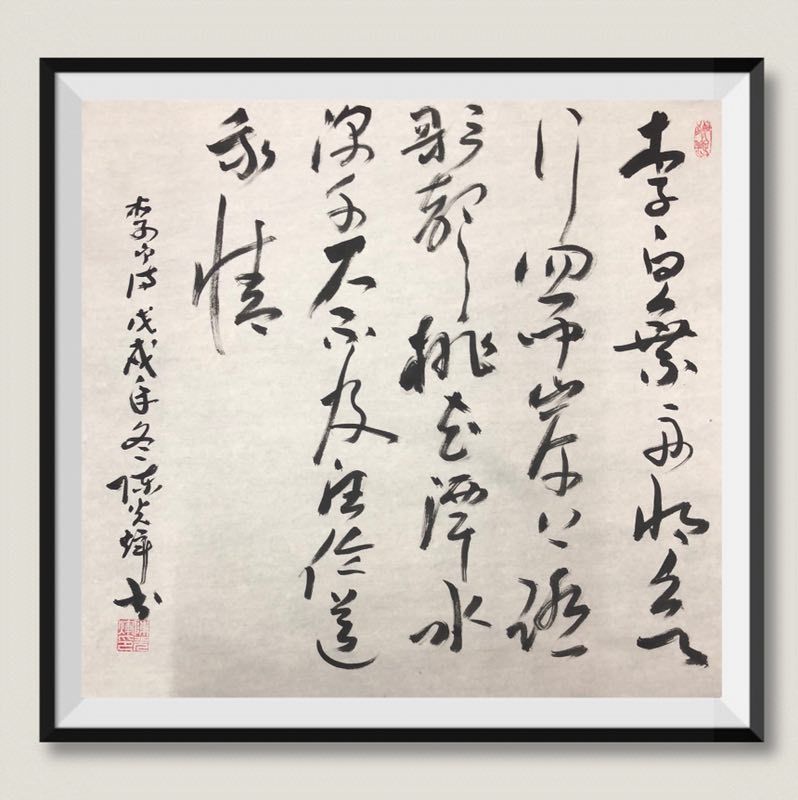 李白乘舟将欲
行忽闻岸上踏
歌声桃花潭水
深千尺不及汪伦送
我情
李白诗 戊戌年冬 陈光 书